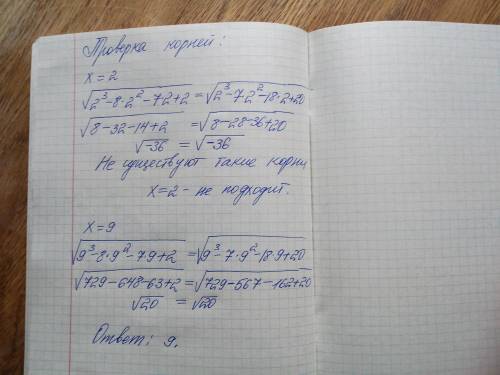 Проверка корней:
x=2
√2³-8·2²-7·2+2=√2³-7·2²-18·2+20
√8-32-14+2 =√8-28-36+20
√-36 = √-36
Не существуют такие корни
x=2 - не подходит.
x=9
√9³-8·9²-7·9+2=√9³-7·9²-18·9+20
√729-648-63+2=√729-567-162+20
√20 = √20
Ответ: 9.